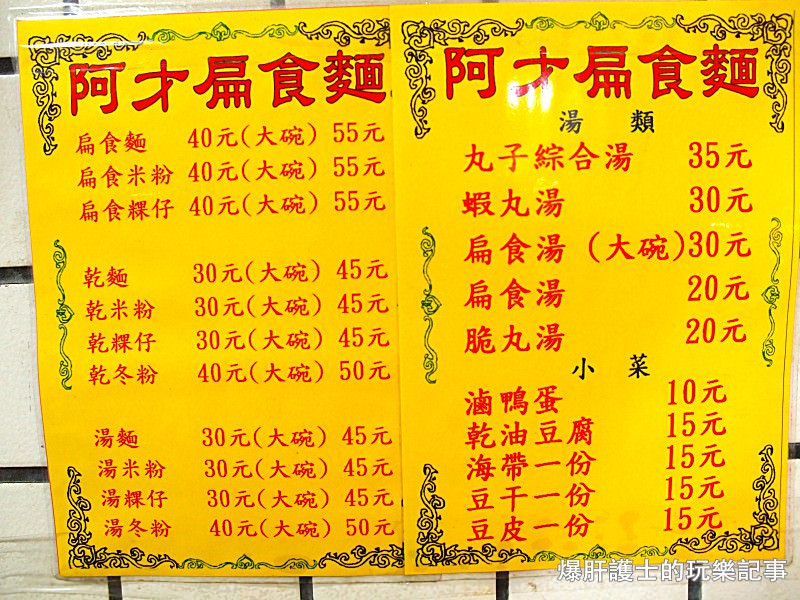 阿才扁食麵
扁食麵 40元(大碗) 55元
扁食米粉 40元(大碗) 55元
扁食粿仔 40元(大碗) 55元
乾麵 30元(大碗) 45元
乾米粉 30元(大碗) 45元
乾粿仔 30元(大碗) 45元
乾冬粉 40元(大碗) 50元
湯麵 30元(大碗) 45元
湯米粉 30元(大碗) 45元
湯粿仔 30元(大碗) 45元
湯冬粉 40元(大碗) 50元
阿才扁食麵
湯 類
丸子綜合湯 35元
蝦丸湯 30元
扁食湯 (大碗)30元
扁食湯 20元
脆丸湯 20元
小 菜
滷鴨蛋 10元
乾油豆腐 15元
海帶一份 15元
豆干一份 15元
豆皮一份 15元
爆肝護士的玩樂記事